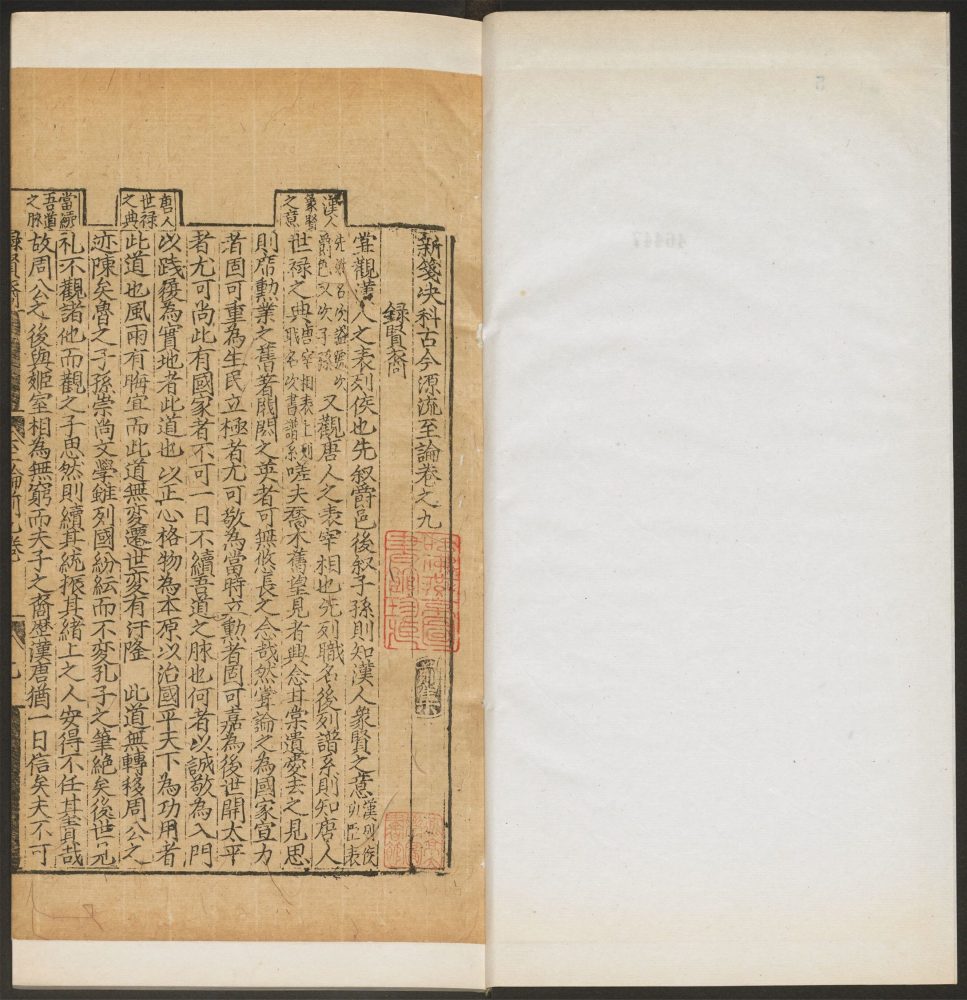 新箋决科古今源流至論卷之九
前集
録賢裔
漢人
象賢
之意
甞觀漢人之表列侯也先叙爵邑後叙子孫則知漢人象賢之意漢列侯
先叙名次謚號次
爵邑又次子孫
又觀唐人之表宰相也先列職名後列譜系則知唐人
世禄之典唐宰相表上列
職名次書譜系
嗟夫喬木舊望見者興念甘棠遺愛去之見思
則席勲業之舊著閥閱之英者可無悠長之念哉然甞論之為國家宣力
者固可重為生民立極者尤可敬為當時立勲者固可嘉為後世開太平
者尤可尚此有國家者不可一日不續吾道之脉也何者以誠敬為入門
唐人
世禄
之典
以踐履為實地者此道也以正心格物為本原以治國平天下為功用者
此道也風雨有晦宜而此道無変遷世变有汙隆 此道無轉移周公之
迹陳矣魯之子孫崇尚文學雖列國紛紜而不变孔子之筆絶矣後世元
當續
吾道
之脉
礼不觀諸他而觀之子思然則續其統振其緒上之人安得不任其責哉
故周公之後與姬室相為無窮而夫子之裔歴漢唐猶一日信矣夫不可
録賢裔
至論前九卷
九
46447
5